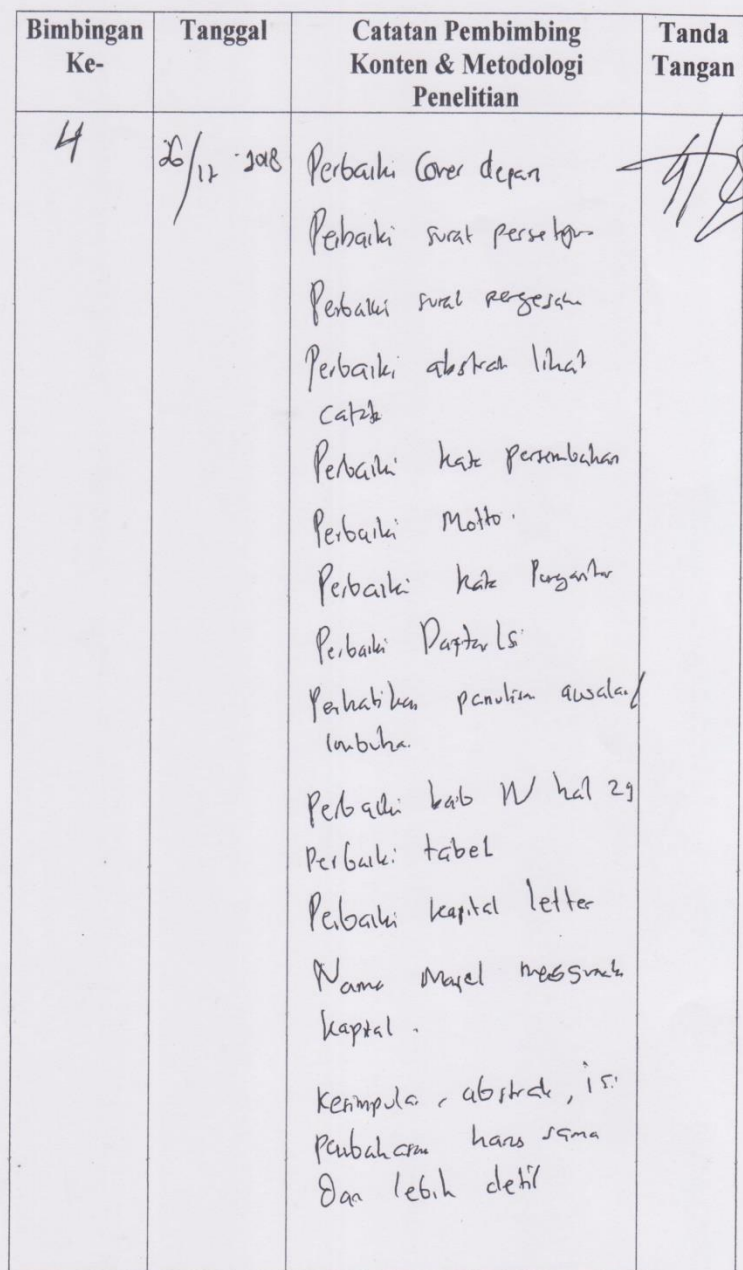 Bimbingan Ke-
Tanggal
Catatan Pembimbing
Konten & Metodologi
Penelitian
Tanda Tangan
4
26/12 - 2018
Perbaiki Cover depan
Perbaiki surat
Perbaiki surat
Perbaiki abstrak lihat
Perbaiki kata persembahan
Perbaiki Motto.
Perbaiki kata Pengantar
Perbaiki Daftar Isi
Perhatikan penulisan awalan/
Perbaiki bab IV hal 29
Perbaiki tabel
Perbaiki kapital letter
Nama
kapital.
Kesimpula, abstrak, isi
harus sama
Dan lebih detil